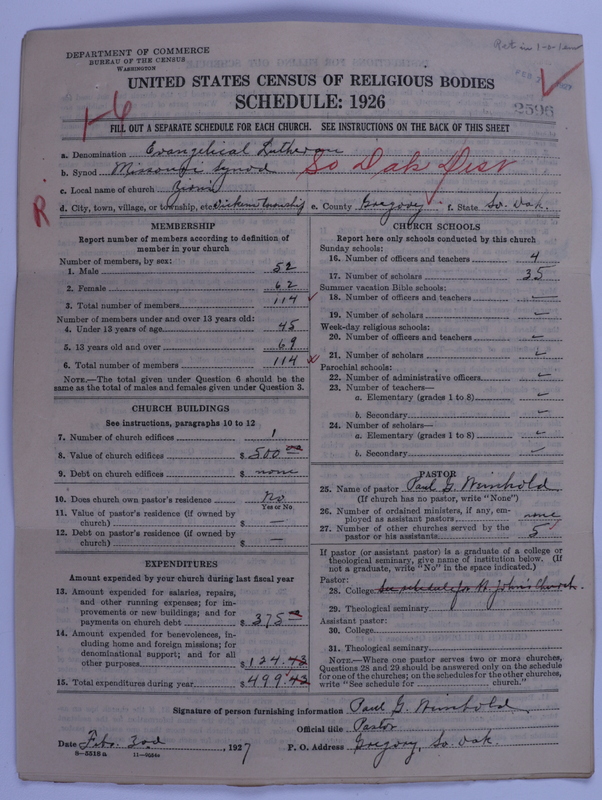 DEPARTMENT OF COMMERCE
BUREAU OF THE CENSUS
WASHINGTON
UNITED STATES CENSUS OF RELIGIOUS BODIES
SCHEDULE: 1926
2596
1-6
FILL OUT A SEPARATE SCHEDULE FOR EACH CHURCH. SEE INSTRUCTIONS ON THE BACK OF THIS SHEET
a. Denomination Evangelical Lutheran
b. Synod Missouri Synod So Dak Dist
c. Local name of church Zion's
d. City, town, village, or township, etc. Dickens township e. County Gregory f. State So. Dak.
R
MEMBERSHIP
Report number of members according to definition of member in your church
Number of members, by sex:
1. Male 52
2. Female 62
3. Total number of members 114
Number of members under and over 13 years old:
4. Under 13 years of age 45
5. 13 years old and over 69
6. Total number of members 114
NOTE.—The total given under Question 6 should be the same as the total of males and females given under Question 3.
CHURCH BUILDINGS
See instructions, paragraphs 10 to 12
7. Number of church edifices 1
8. Value of church edifices $ 500 00
9. Debt on church edifices $ none
10. Does church own pastor's residence No
Yes or No
11. Value of pastor's residence (if owned by church) $ —
12. Debt on pastor's residence (if owned by church) $ —
EXPENDITURES
Amount expended by your church during last fiscal year
13. Amount expended for salaries, repairs, and other running expenses; for improvements or new buildings; and for payments on church debt $ 375
14. Amount expended for benevolences, including home and foreign missions; for denominational support; and for all other purposes $ 124.43
15. Total expenditures during year $ 499.43
CHURCH SCHOOLS
Report here only schools conducted by this church
Sunday schools:
16. Number of officers and teachers 4
17. Number of scholars 35
Summer vacation Bible schools:
18. Number of officers and teachers —
19. Number of scholars —
Week-day religious schools:
20. Number of officers and teachers —
21. Number of scholars —
Parochial schools:
22. Number of administrative officers —
23. Number of teachers—
a. Elementary (grades 1 to 8) —
b. Secondary —
24. Number of scholars—
a. Elementary (grades 1 to 8) —
b. Secondary —
PASTOR
25. Name of pastor Paul G. Weinhold
(If church has no pastor, write "None")
26. Number of ordained ministers, if any, employed as assistant pastors none
27. Number of other churches served by the pastor or his assistants 5
If pastor (or assistant pastor) is a graduate of a college or theological seminary, give name of institution below. (If not a graduate, write "No" in the space indicated.)
Pastor:
28. College See schedule for St. John's Church.
29. Theological seminary
Assistant pastor:
30. College
31. Theological seminary
NOTE.—Where one pastor serves two or more churches, Questions 28 and 29 should be answered only on the schedule for one of the churches; on the schedules for the other churches, write "See schedule for ______ church."
Signature of person furnishing information Paul G. Weinhold
Official title Pastor
Date Febr. 3rd, 1927 P. O. Address Gregory, So. Dak.
8—5518a 11—9054c